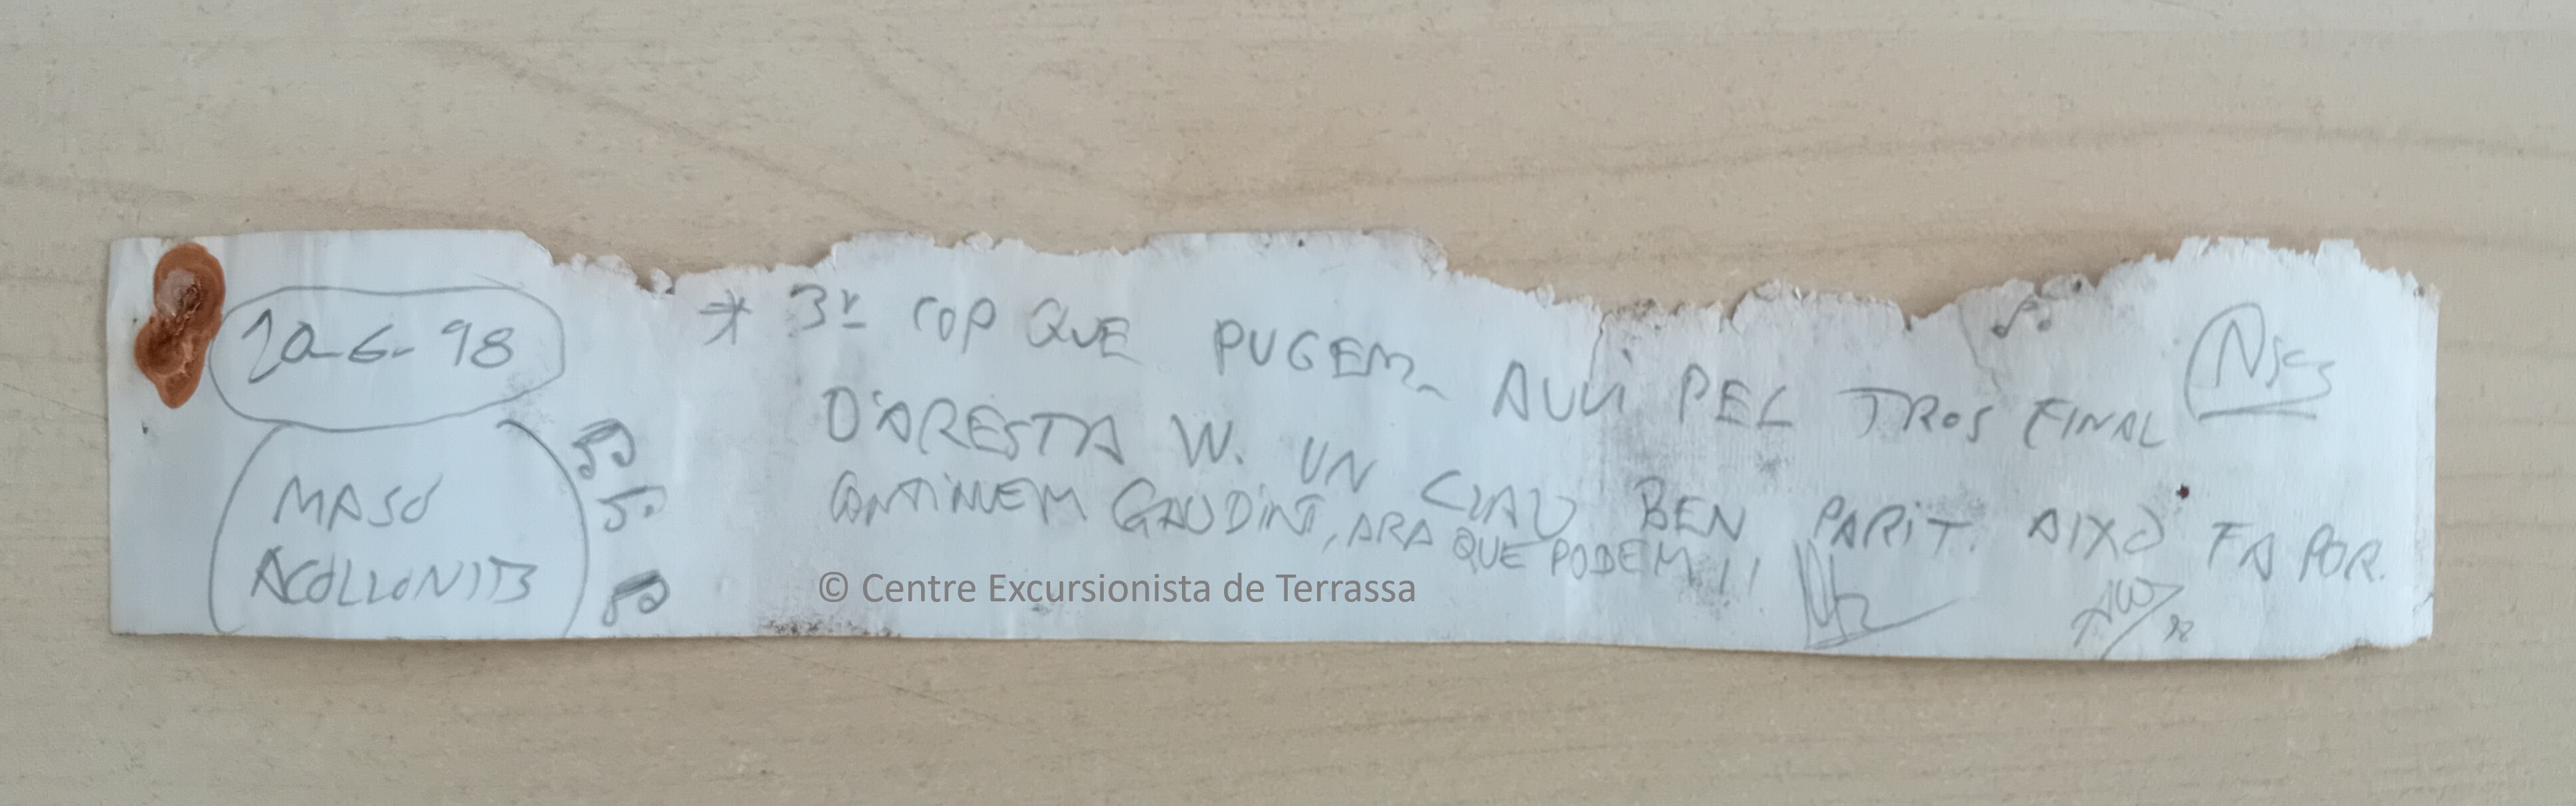 20-6-98
MASO
ACOLLONITS
* 3r COP QUE PUGEM AVUI PEL TROS FINAL
D'ARESTA W. UN CLAU BEN PARIT. AIXÒ FA POR.
CONTINUEM GAUDINT, ARA QUE PODEM!!
© Centre Excursionista de Terrassa